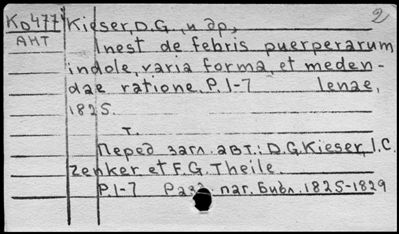 2
KD477 Kieser, D.G., и др,
АНТ Inest de febris puerperarum
indole, varia forma, et meden-
dae ratione. P. 1-7 Ienae,
1825.
т.
Перед загл. авт.: D.G.Kieser, I.C.
Zenker et F.G. Theile.
P.1-7 Разд. паг. Библ. 1825-1829